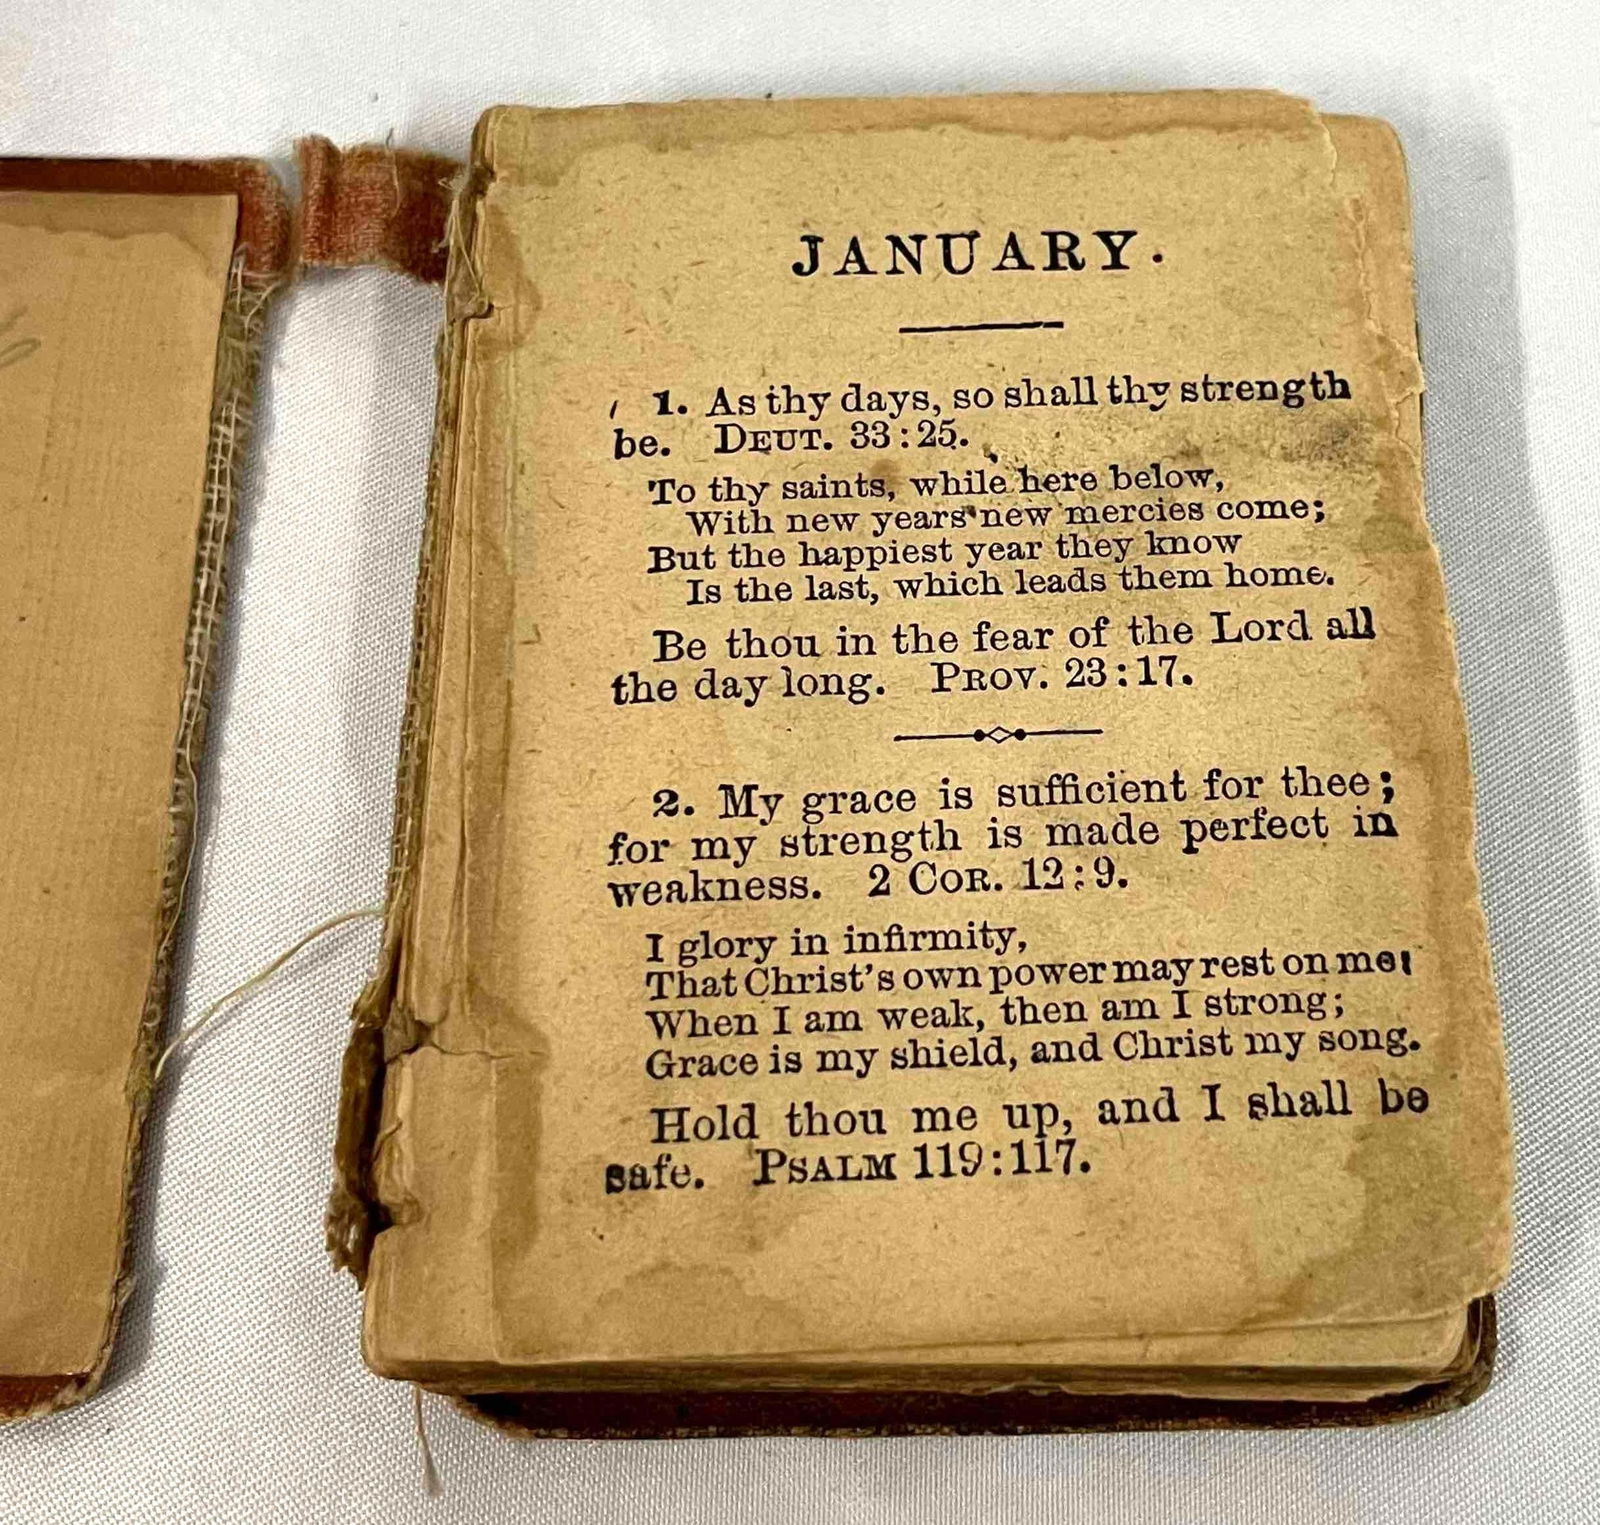 JANUARY.
1. As thy days, so shall thy strength
be. DEUT. 33:25.
To thy saints, while here below,
With new years new mercies come;
But the happiest year they know
Is the last, which leads them home.
Be thou in the fear of the Lord all
the day long. PROV. 23:17.
2. My grace is sufficient for thee;
for my strength is made perfect in
weakness. 2 COR. 12:9.
I glory in infirmity,
That Christ's own power may rest on me:
When I am weak, then am I strong;
Grace is my shield, and Christ my song.
Hold thou me up, and I shall be
safe. PSALM 119:117.